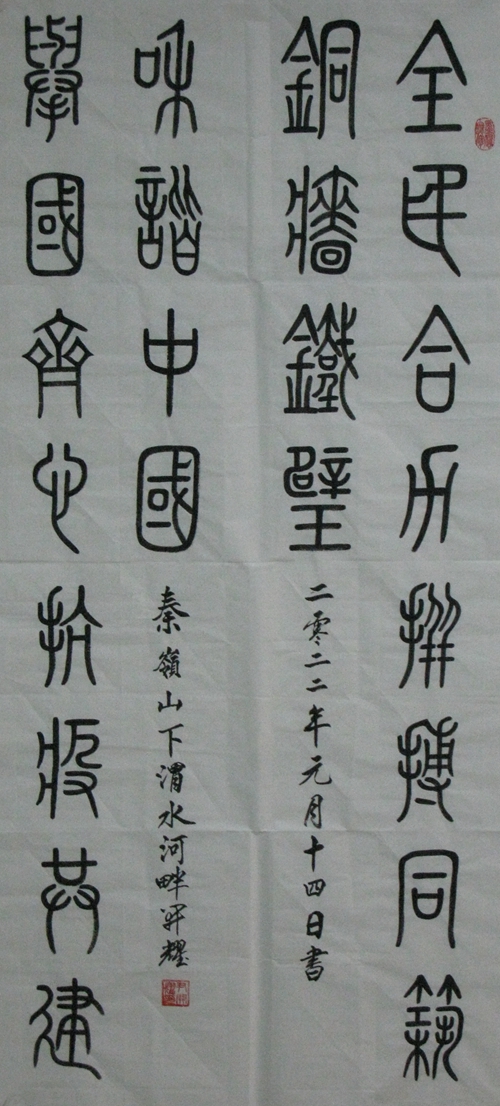 全民合力拼搏同筑
銅牆鐵璧
二零二二年元月十四日書
舉國齊心抗疫共建
和諧中國
秦嶺山下渭水河畔耀